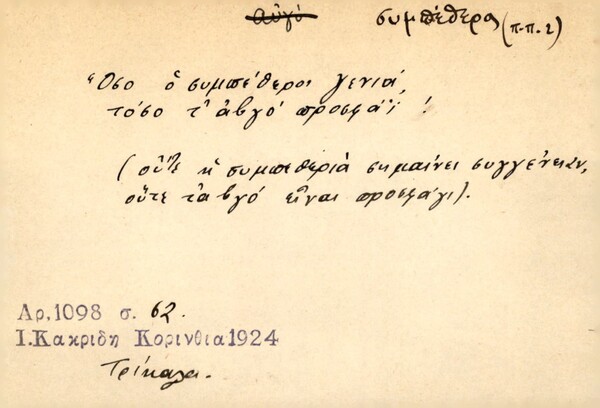 αὐγό συμπέθερος (π.π. 2)
Ὅσο ὁ συμπέθεροι γενιά,
τόσο τ' ἀβγό προσφάϊ!
(οὔτε ἡ συμπεθεριὰ σημαίνει συγγένειαν,
οὔτε τἀβγό εἶναι προσφάγι).
Αρ.1098 σ. 62.
Ι.Κακριδη Κορινθια1924
Τρίκαλα.